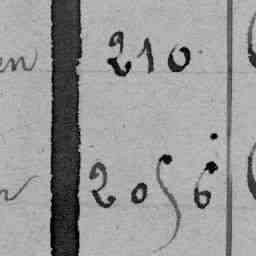 en 210
2056